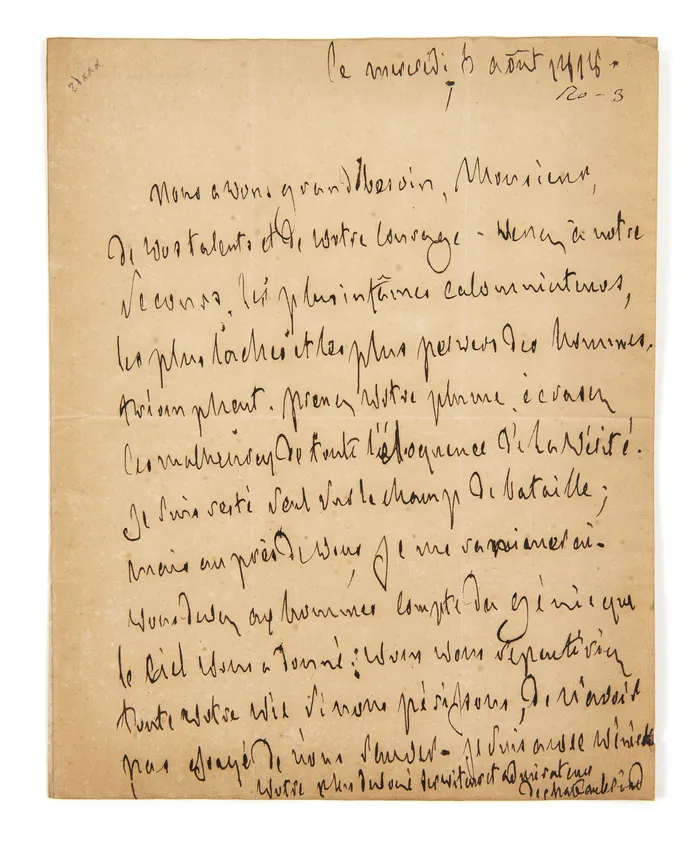 le mercredi 5 août 1818.
20 - 3
Nous avons grand besoin, Monsieur,
de vos talents et de votre courage - venez à notre
secours, les plus infâmes calomniateurs,
les plus lâches et les plus pervers des hommes,
triomphent. prenez votre plume, écrasez
ces malheureux de toute l'éloquence de la vérité.
je suis resté seul sur le champ de bataille;
mais auprès de vous, je me ranimerai.
vous devez aux hommes compte du génie que
le ciel vous a donné: vous vous repentiriez
toute votre vie si nous périssons, de n'avoir
pas essayé de nous sauver - je suis avec
votre plus dévoué serviteur et admirateur
de chateaubriand